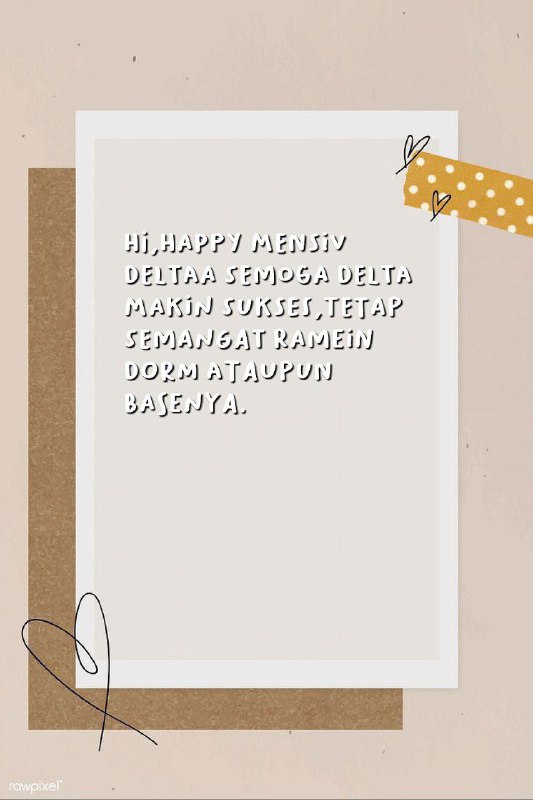 Hi,HAPPY MENSiV
DELTAA SEMOGA DELTA
MAKiN SUKSES,TETAP
SEMANGAT RAMEiN
DORM ATAUPUN
BASENYA.
rawpixel